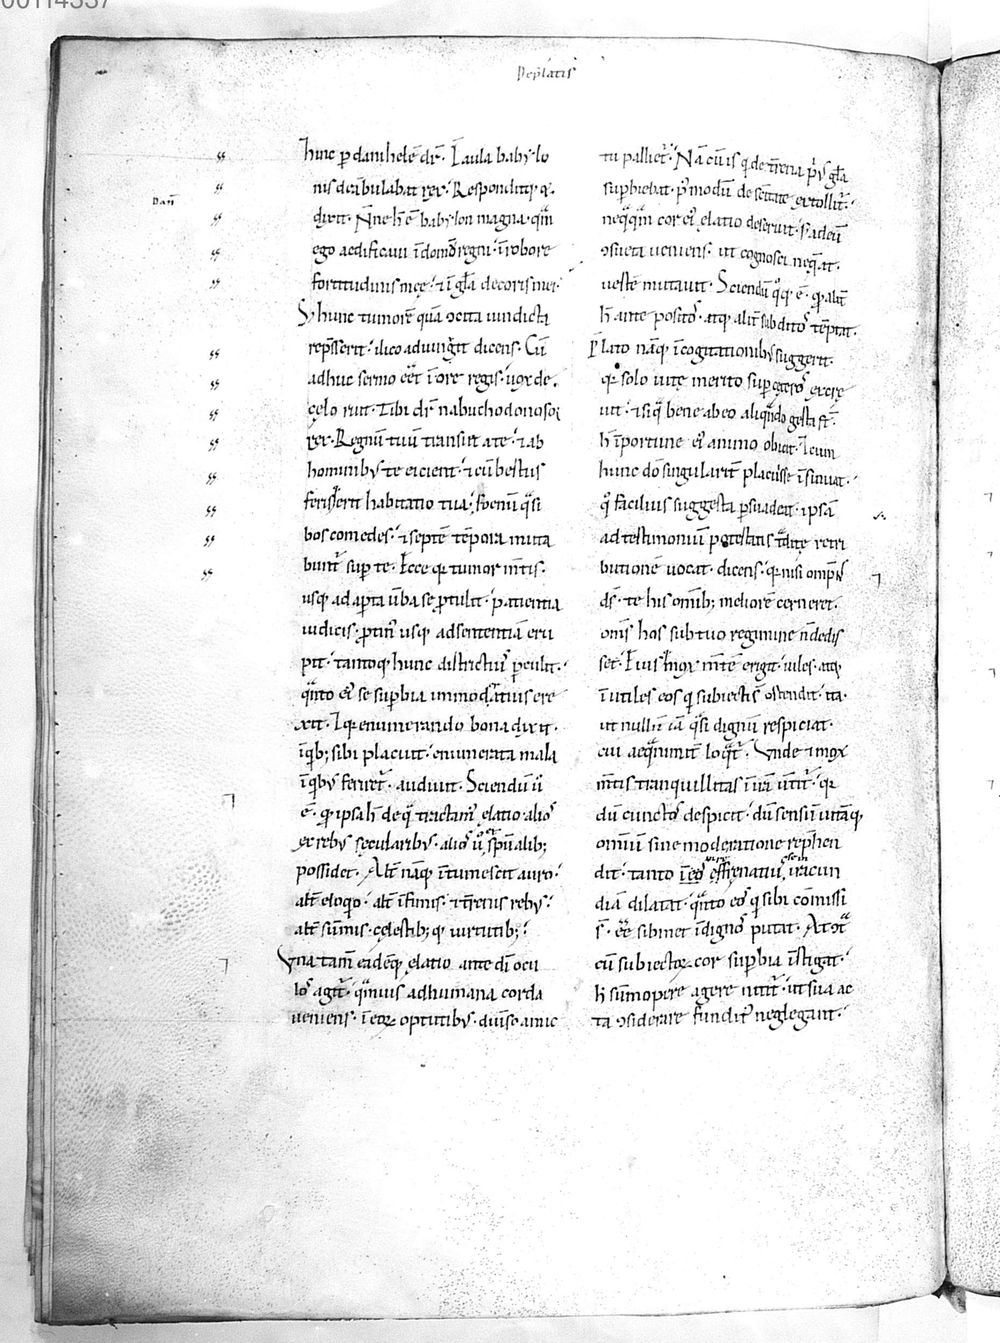 00114337
De p̄latis
Dañ
hunc ꝑ danihelē dr̄. In aula baby lo
nis deābulabat rex. Responditq; &
dixit. Nñe hęc ē babylon magna. quā
ego aedificavi ī domū regni. ī robore
fortitudinis męę. & ī gl̄a decoris mei.
S; hunc tumorē quā ↄcita vindicta
rep̄sserit. ilico adiungit dicens. Cū
adhuc sermo eēt ī ore regis. vox de
cęlo ruit. Tibi dr̄ nabuchodonosor
rex. Regnū tuū transivit a te. & ab
hominibꝰ te eicient. & cū bestiis
ferisq; erit habitatio tua. foenū q̄si
bos comedes. & septē tēpora muta
buntʳ sup te. Ecce qꝫ tumor m̄tis
usq; ad apta v̄ba se ꝓtulit. patientia
iudicis. ꝓtin̄ usq; ad sententiā eru
pit. tantoq; hunc districtiꝰ ꝑculit.
q̄nto eiꝰ se supbia inmoderatius ere
xit. Et qꝫ enumerando bona dixit.
ī qib; sibi placuit. enumerata mala
ī qibꝰ ferietʳ. audivit. Sciendū ū
ē. qꝫ ipsa h̄ de q̄ tractamꝰ elatio alios
ex rebꝰ sęcularibꝰ. alios ū sp̄ualib;
possidet. Aliū nāq; ītumescit auro.
aliū eloqio. aliū īfimis. & t̄renis rebꝰ.
aliū sūmis. cęlestib; q; virtutib;.
Una tam̄ eadēq; elatio ante dī ocu
los agitʳ. q̄mvis ad humana corda
veniens. ī eoꝝ optutibꝰ. diūso amic
tu palliet̄. Nā cū is q de t̄rena p̄ꝰ gl̄a
supbiebat. p̄modū de sc̄itate extollit̄.
neq̄q̄m cor eiꝰ elatio deseruit. s; ad eū
ↄsueta veniens. ut cognosci neq̄at.
vestē mutavit. Sciendū q°q; ē. qꝫ aliū
h̄ ante positos. atq; aliū subditos tēptat.
P̄lato nāq; ī cogitationibꝰ suggerit.
qꝫ solo vitę merito sup cęteros excre
vit. & siq̄ bene ab eo aliq̄ndo gesta st̄.
h̄ īportune eiꝰ animo obicit. Et cum
hunc dō singularit̄ placuisse īsinuat.
q° facilius suggesta psuadeat. ipsā
ad testimoniū potestatis tradite retri
butionē vocat. dicens. qꝫ nisi omp̄s
ds̄. te his omīb; meliorē cerneret.
omīs hos sub tuo regimine n̄ dedis
set. Eiusq; mox m̄tē erigit. viles. atq;
īutiles eos qi subiecti st̄ ostendit. ita
ut nullū iā q̄si dignū respiciat.
cui aequanimit̄ loq̄t̄. Unde & mox
m̄tis tranquillitas ī irā v̄titʳ. qꝫ
dū cunctos despicit. dū sensū vitāq;
omniū sine moderatione rep̄hen
dit. tanto ī eos effrenatiꝰ iracun
diā dilatat. q̄nto eos qi sibi cōmissi
st̄. eē sibimet īdignos putat. At ↄt̄
cū subiectoꝝ cor supbia īstigat.
h̄ sūmopere agere nitit̄. ut sua ac
ta ↄsiderare fundit̄ neglegant.